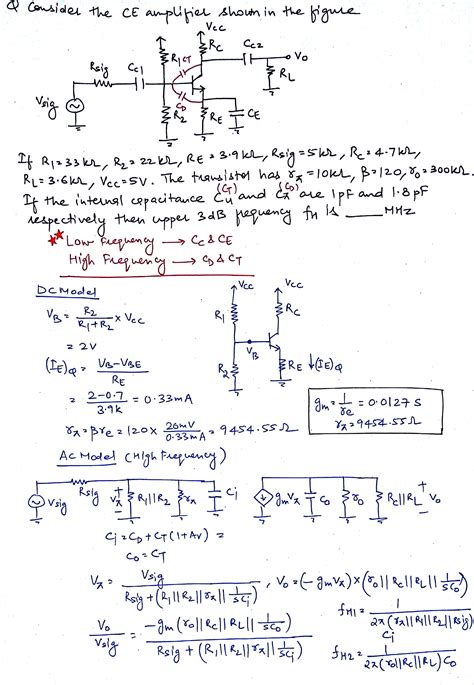 Q Consider the CE amplifier shown in the figure
Vcc
R1 CT Rc Cc2
Vo
Rsig Cc1 RL
Vsig CD
R2 RE CE
If R1=33kΩ, R2=22kΩ, RE=3.9kΩ, Rsig=5kΩ, Rc=4.7kΩ,
RL=3.6kΩ, Vcc=5V. The transistor has rπ=10kΩ, β=120, r0=300kΩ.
(CT) (CD)
If the internal capacitance Cu and Cπ are 1pF and 1.8pF
respectively then upper 3dB frequency fH is ____ MHz
Low Frequency → Cc & CE
High Frequency → CD & CT
DC Model
VB = R2/(R1+R2) × Vcc
= 2V
(IE)Q = (VB-VBE)/RE
= (2-0.7)/3.9k = 0.33mA
rπ=βre=120× 26mV/0.33mA = 9454.55Ω
Vcc Vcc
R1 Rc
VB
R2 RE ↓(IE)Q
gm = 1/re = 0.0127 S
rπ=9454.55Ω
AC Model (High Frequency)
Vsig Rsig + Vπ - R1||R2 rπ Ci gmVπ Co r0 Rc||RL + Vo -
Ci=CD+CT(1+Av) =
Co=CT
Vπ = Vsig/(Rsig+(R1||R2||rπ||1/sCi)) , Vo=(-gmVπ)×(r0||Rc||RL||1/sCo)
Vo/Vsig = -gm(r0||Rc||RL||1/sCo)/(Rsig+(R1||R2||rπ||1/sCi))
fH1 = 1/(2π(rπ||R1||R2||Rsig)Ci
fH2 = 1/(2π(r0||Rc||RL)Co